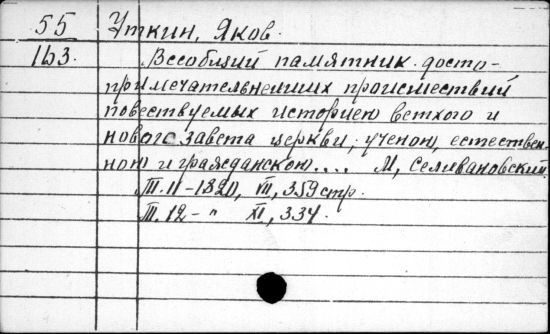 55 Уткин, Яков.
163. Всеобщий памятник досто-
примечательнейших происшествий
повествуемых историею ветхого и
нового завета церкви, ученою, естествен-
ною и гражданскою.... М, Селивановский
Т. 11-1820, VII, 359 стр.
Т. 12- " XI, 334.